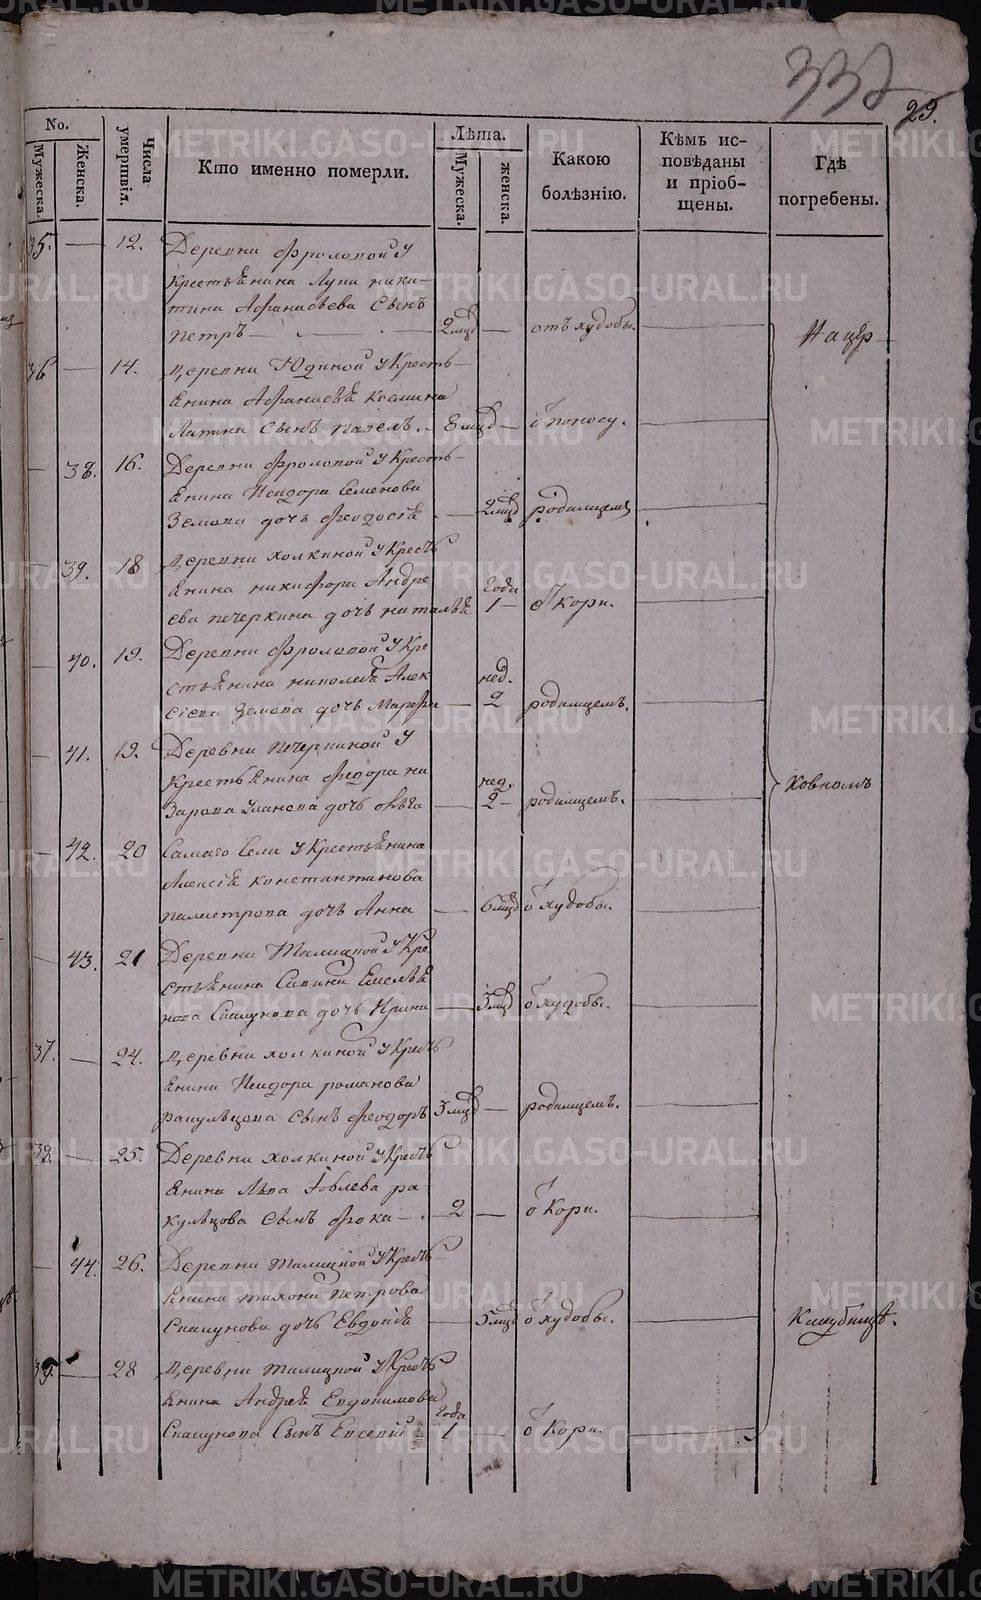 332
29.
No.
Мужеска.
Женска.
Числа умершвіл.
Кто именно померли.
Лѣта.
Мужеска.
женска.
Какою болѣзнію.
Кѣмъ исповѣданы и пріобщены.
Гдѣ погребены.
35. — 12. Деревни Фроловой у
крестьянина Лупа Ники-
тина Афанасьева сынъ
Петръ — 2 мцъ — отъ худобы.
На цер
36 — 14. Деревни Юдиной у кресть-
янина Афанасья Космина
Латина сынъ Павелъ — 8 мцъ — ѿ поносу.
— 38. 16. Деревни Фроловой у кресть-
янина Исидора Семенова
Земова дочь Феодосія — 2 мцъ родимцемъ
— 39. 18 Деревни Холкиной у кресть
янина Никифора Андре
ева Печеркина дочь Наталья года 1 — ѿ Кори.
— 40. 19. Деревни Фроловой у кре
стьянина Николая Алек
сіева Земова дочь Марфа — нед. 2 родимцемъ.
— 41. 19. Деревни Печеркиной у
крестьянина Федора На
зарова Уланова дочь Ольга — нед. 2 — родимцемъ.
— 42. 20 Самаго села у крестьянина
Алексія Константинова
Палистрова дочь Анна — 6 мцъ ѿ худобы.
— 43. 21 Деревни Талицкой у кре
стьянина Савина Емелья
нова Спицунова дочь Ирина — 3 мцъ ѿ худобы.
37. — 24. Деревни Холкиной у кресть
янина Исидора Романова
Ракульцова сынъ Феодоръ 3 мцъ — родимцемъ.
38. — 25. Деревни Холкиной у кресть
янина Льва Іовлева Ра
кульцова сынъ Фока — 2 — ѿ Кори.
— 44. 26. Деревни Талицкой у кресть
янина Тихона Петрова
Спицунова дочь Евдокія — 5 мцъ ѿ худобы.
39. — 28 Деревни Талицкой у кресть
янина Андрея Евдокимова
Спицунова сынъ Евсевій года 1 — ѿ Кори.
ковномъ
Кладбищѣ.
METRIKI.GASO-URAL.RU